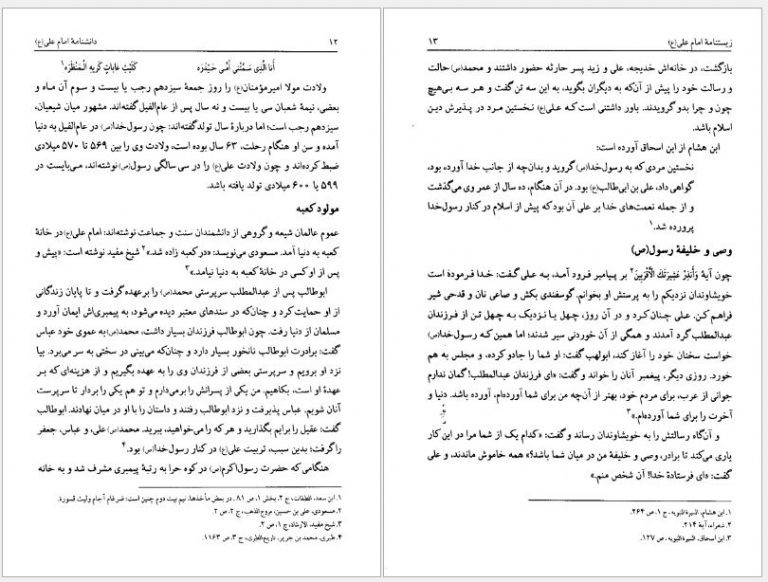 ۱۲ دانشنامهٔ امام علی(ع)
أَنَا الَّذِي سَمَّتْنِي أُمِّي حَيْدَرَه كَلَيْثِ غاباتٍ كَرِيهِ الْمَنْظَرَه۱
ولادت مولا امیرمؤمنان(ع) را روز جمعهٔ سیزدهم رجب یا بیست و سوم آن ماه و
بعضی، نیمهٔ شعبان سی یا بیست و نه سال پس از عام‌الفیل گفته‌اند. مشهور میان شیعیان،
سیزدهم رجب است؛ اما دربارهٔ سال تولد گفته‌اند: چون رسول‌خدا(ص) در عام‌الفیل به دنیا
آمده و سن او هنگام رحلت، ۶۳ سال بوده است، ولادت وی را بین ۵۶۹ تا ۵۷۰ میلادی
ضبط کرده‌اند و چون ولادت علی(ع) را در سی سالگی رسول(ص) نوشته‌اند، می‌بایست در
۵۹۹ یا ۶۰۰ میلادی تولد یافته باشد.
مولود کعبه
عموم عالمان شیعه و گروهی از دانشمندان سنت و جماعت نوشته‌اند: امام علی(ع) در خانهٔ
کعبه به دنیا آمد. مسعودی می‌نویسد: «در کعبه زاده شد.»۲ شیخ مفید نوشته است: «پیش و
پس از او کسی در خانهٔ کعبه به دنیا نیامد.»۳
ابوطالب پس از عبدالمطلب سرپرستی محمد(ص) را برعهده گرفت و تا پایان زندگانی
از او حمایت کرد و چنان‌که در سندهای معتبر دیده می‌شود، به پیمبری‌اش ایمان آورد و
مسلمان از دنیا رفت. چون ابوطالب فرزندان بسیار داشت، محمد(ص) به عموی خود عباس
گفت: برادرت ابوطالب نانخور بسیار دارد و چنان‌که می‌بینی در سختی به سر می‌برد. بیا
نزد او برویم و سرپرستی بعضی از فرزندان وی را به عهده بگیریم و از هزینه‌ای که بر
عهدهٔ او است، بکاهیم. من یکی از پسرانش را برمی‌دارم و تو هم یکی را بردار تا سرپرست
آنان شویم. عباس پذیرفت و نزد ابوطالب رفتند و داستان را با او در میان نهادند. ابوطالب
گفت: عقیل را برایم بگذارید و هر که را می‌خواهید، ببرید. محمد(ص) علی، و عباس، جعفر
را گرفت؛ بدین سبب، تربیت علی(ع) در کنار رسول‌خدا(ص) بود.۴
هنگامی که حضرت رسول اکرم(ص) در کوه حرا به رتبهٔ پیمبری مشرف شد و به خانه
۱. ابن سعد، الطبقات، ج ۲، بخش ۱، ص ۸۱. در بعض مأخذها، نیم بیت دوم چنین است: ضرغام آجام ولیث قسورة.
۲. مسعودی، علی بن حسین، مروج‌الذهب، ج ۲، ص ۲.
۳. شیخ مفید، الارشاد، ج ۱، ص ۲.
۴. طبری، محمد بن جریر، تاریخ‌الطبری، ج ۳، ص ۱۱۶۳.
زیستنامهٔ امام علی(ع) ۱۳
بازگشت، در خانه‌اش خدیجه، علی و زید پسر حارثه حضور داشتند و محمد(ص) حالت
و رسالت خود را پیش از آن‌که به دیگران بگوید، به این سه تن گفت و هر سه بی‌هیچ
چون و چرا بدو گرویدند. باور داشتنی است که علی(ع) نخستین مرد در پذیرش دین
اسلام باشد.
ابن هشام از ابن اسحاق آورده است:
نخستین مردی که به رسول‌خدا(ص) گروید و بدان‌چه از جانب خدا آورده بود،
گواهی داد، علی بن ابی‌طالب(ع) بود. در آن هنگام، ده سال از عمر وی می‌گذشت
و از جمله نعمت‌های خدا بر علی آن بود که پیش از اسلام در کنار رسول‌خدا
پرورده شد.۱
وصی و خلیفهٔ رسول(ص)
چون آیهٔ وَأَنذِرْ عَشِيرَتَكَ الْأَقْرَبِينَ۲ بر پیامبر فرود آمد، به علی گفت: خدا فرمودهٔ است
خویشاوندان نزدیکم را به پرستش او بخوانم. گوسفندی بکش و صاعی نان و قدحی شیر
فراهم کن. علی چنان کرد و در آن روز، چهل یا نزدیک به چهل تن از فرزندان
عبدالمطلب گرد آمدند و همگی از آن خوردنی سیر شدند؛ اما همین که رسول‌خدا(ص)
خواست سخنان خود را آغاز کند، ابولهب گفت: او شما را جادو کرده، و مجلس به هم
خورد. روزی دیگر، پیغمبر آنان را خواند و گفت: «ای فرزندان عبدالمطلب! گمان ندارم
جوانی از عرب، برای مردم خود، بهتر از آن‌چه من برای شما آورده‌ام، آورده باشد. دنیا و
آخرت را برای شما آورده‌ام.»۳
و آن‌گاه رسالتش را به خویشاوندان رساند و گفت: «کدام یک از شما مرا در این کار
یاری می‌کند تا برادر، وصی و خلیفهٔ من در میان شما باشد؟» همه خاموش ماندند، و علی
گفت: «ای فرستادهٔ خدا! آن شخص منم.»
۱. ابن هشام، السیرة‌النبویه، ج ۱، ص ۲۶۴.
۲. شعراء، آیهٔ ۲۱۴.
۳. ابن اسحاق، السیرة‌النبویه، ص ۱۲۷.